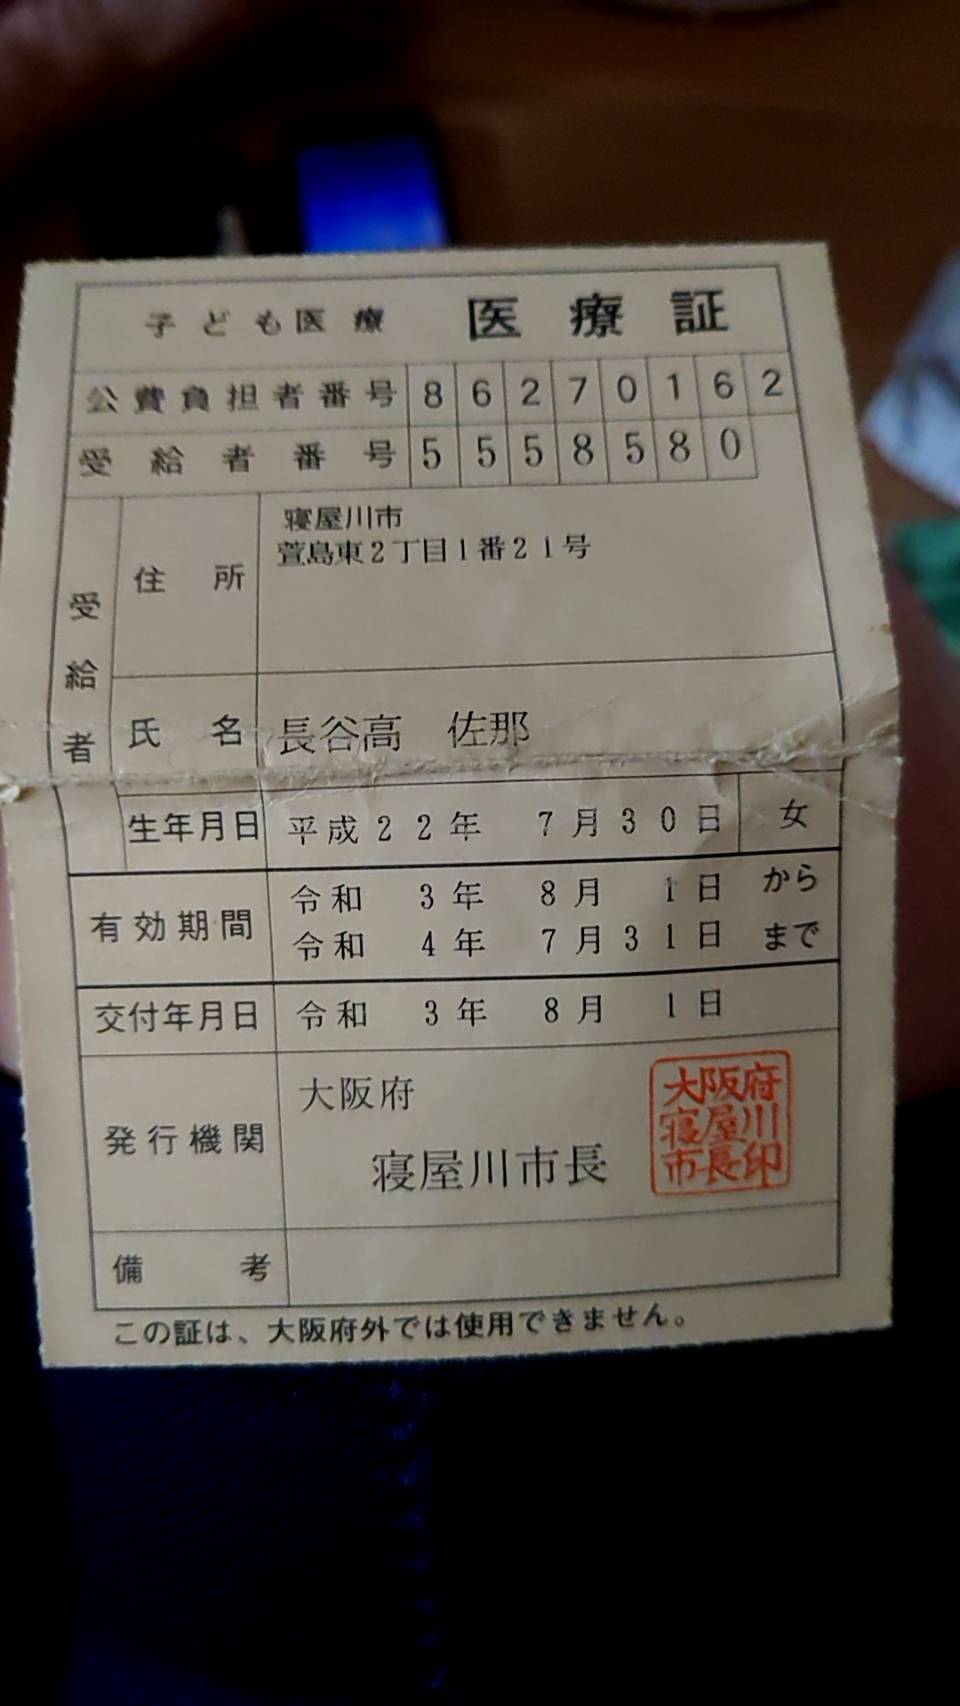 子ども医療 医療証
公費負担者番号 86270162
受給者番号 5558580
受給者
住所 寝屋川市
萱島東2丁目1番21号
氏名 長谷高 佐那
生年月日 平成22年 7月30日 女
有効期間 令和 3年 8月 1日 から
令和 4年 7月31日 まで
交付年月日 令和 3年 8月 1日
発行機関 大阪府
寝屋川市長
大阪府
寝屋川
市長印
備考
この証は、大阪府外では使用できません。